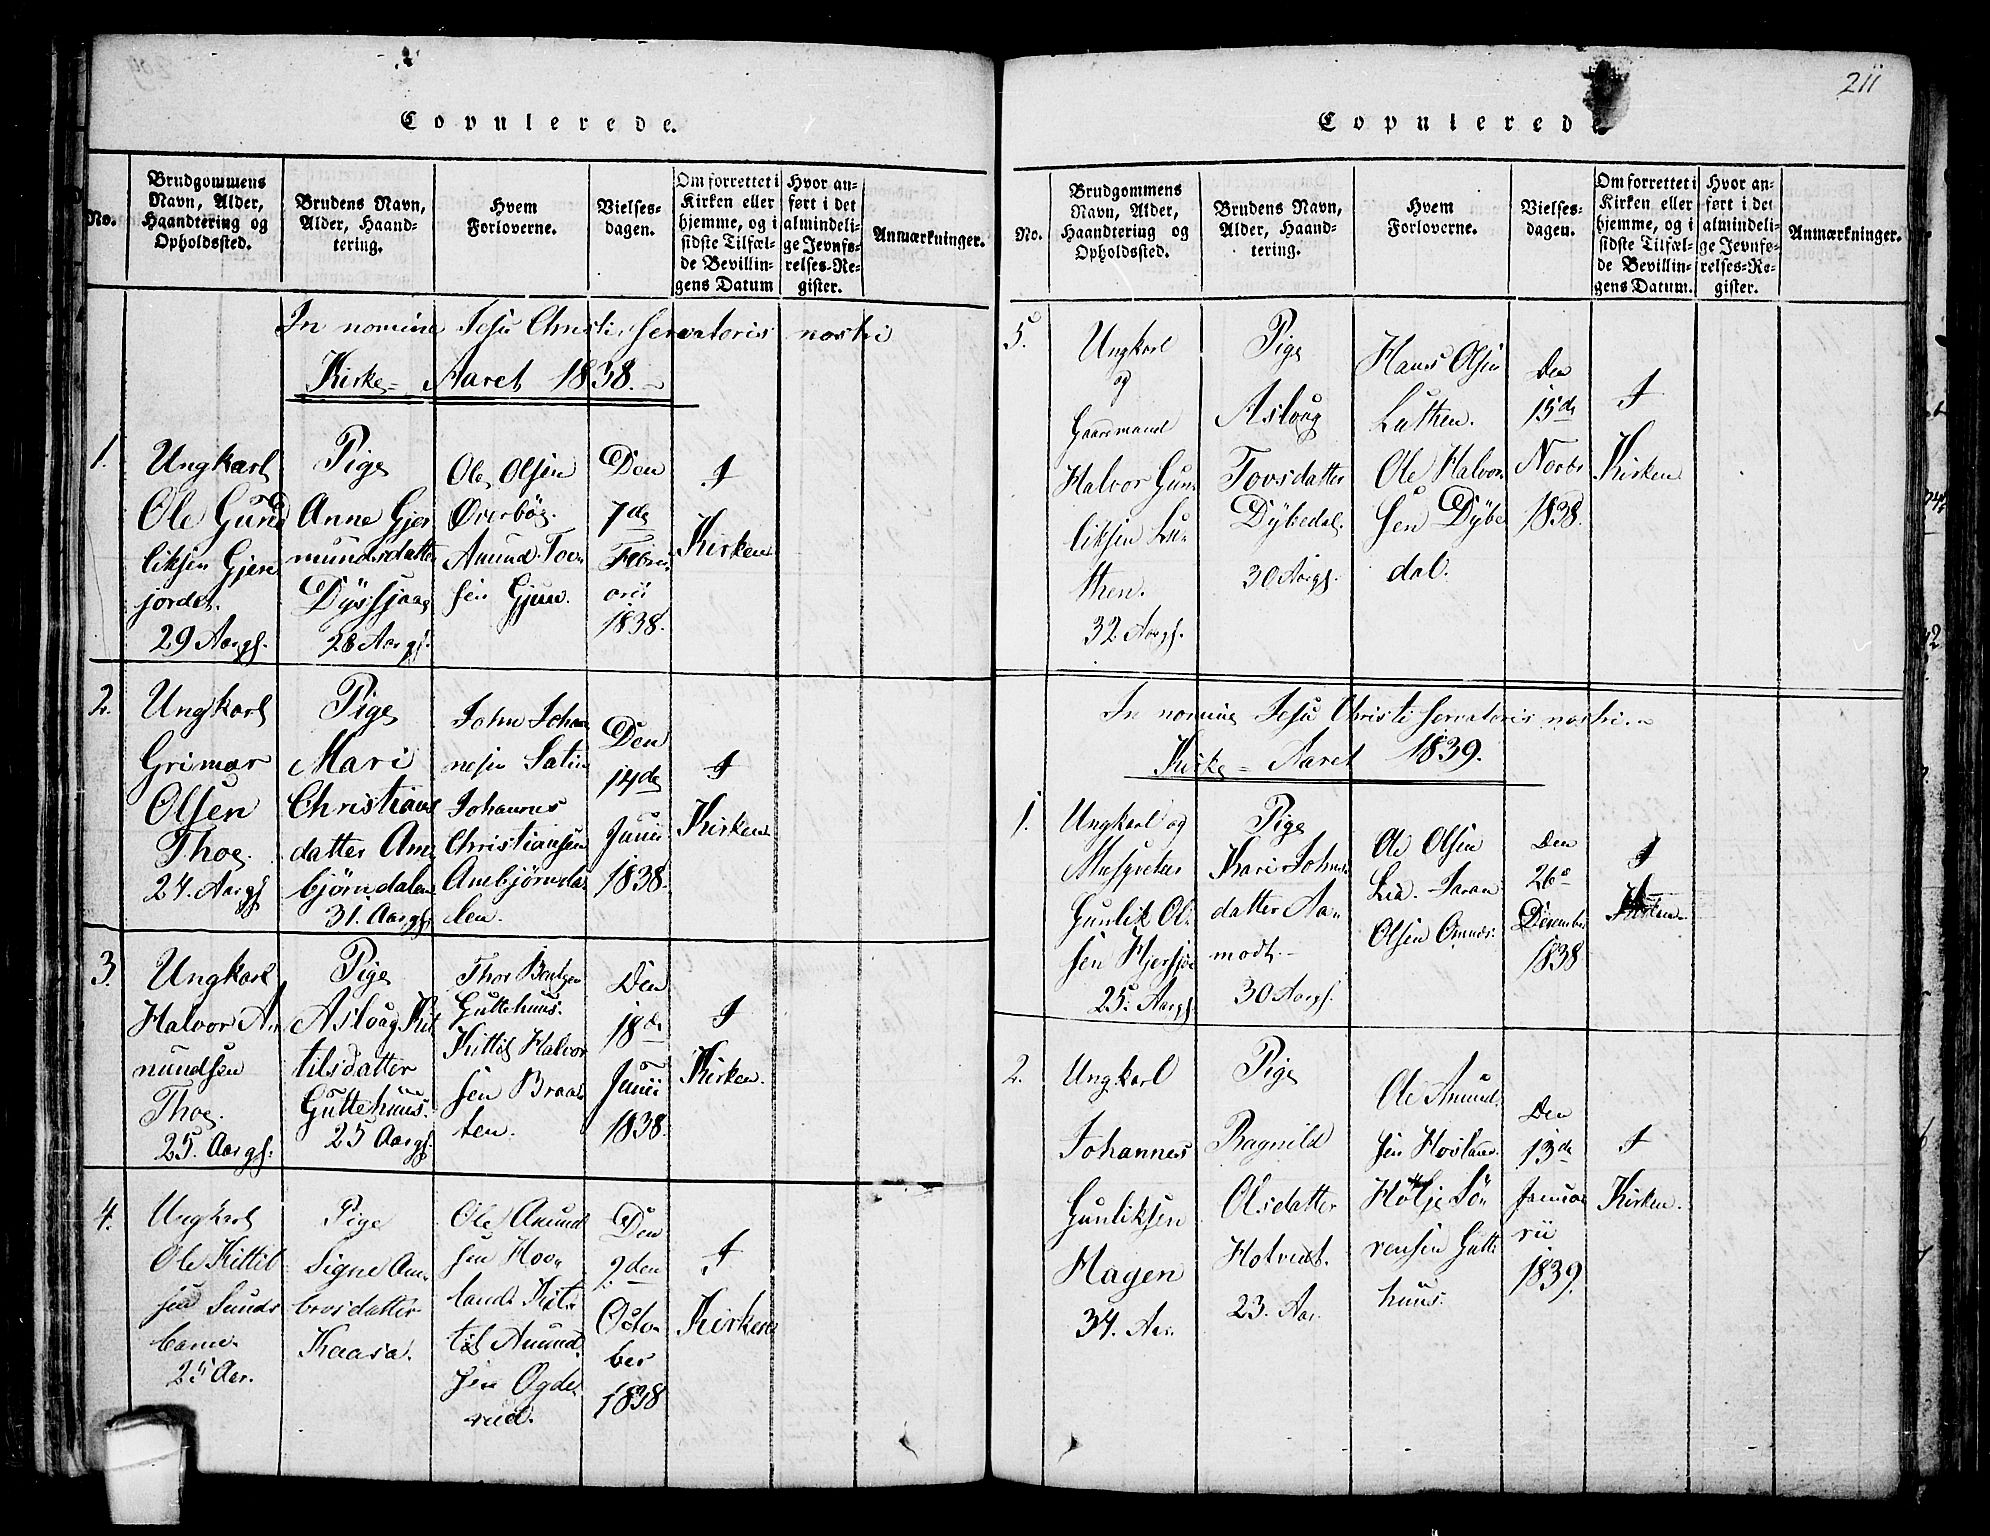 Copulerede.
No.
Brudgommens
Navn, Alder,
Haandtering og
Opholdssted.
Brudens Navn,
Alder, Haand-
tering.
Hvem
Forloverne.
Vielses-
dagen.
Om forrettet i
Kirken eller
hjemme, og i
sidste Tilfæl-
de Bevillin-
gens Datum
Hvor an-
ført i det
almindeli-
ge Jevnfø-
relses-Re-
gister.
Anmærkninger.
In nomine Jesu Christi servatoris nostri
Kirke- Aaret 1838.
1.
Ungkarl
Ole Gund
liksen Gjern
jordet.
29 Aargl.
Pige
Anne Gjer
mundsdatter
Dyssjaag
28 Aargl.
Ole Olsen
Øverbøe.
Amund Tov
sen Gjuu.
Den
7de
Febru
arii
1838.
I
Kirken
2.
Ungkarl
Grimar
Olsen
Thoe.
24. Aargl
Pige
Mari
Christians
datter Ane
bjørndalen
31. Aargl.
John Johan
nesen Satin
Johannes
Christiansen
Anebjørnda
len.
Den
14de
Junii
1838.
I
Kirken
3.
Ungkarl
Halvor A
mundsen
Thoe.
25. Aargl.
Pige
Aslaug Kit
tilsdatter
Guttehuus.
25 Aargl.
Thor Bentsen
Guttehuus.
Kittil Halvor
sen Braa
ten.
Den
18de
Junii
1838.
I
Kirken.
4.
Ungkarl
Ole Kittil
sen Sunds
barm.
25 Aar.
Pige
Signe Am-
brosdatter
Kaasa.
Ole Amund
sen Hov
land. Kit
til Amund
sen Ogde
rud.
Den
2den
Octo-
ber
1838
I
Kirken
211
Copulerede
No.
Brudgommens
Navn, Alder,
Haandtering og
Opholdssted.
Brudens Navn,
Alder, Haand-
tering.
Hvem
Forloverne.
Vielses-
dagen.
Om forrettet i
Kirken eller
hjemme, og i
sidste Tilfæl-
de Bevillin-
gens Datum.
Hvor an-
ført i det
almindeli-
ge Jevnfø-
relses-Re-
gister.
Anmærkninger.
5.
Ungkarl
og
Gaardmand
Halvor Gun
liksen Lu-
then.
32. Aargl.
Pige
Aslaug
Tovsdatter
Dybedal.
30 Aargl.
Hans Olsen
Luthen.
Ole Halvor
sen Dybe
dal.
Den
15de
Novbr
1838.
I
Kirken
In nomine Jesu Christi servatoris nostri
Kirke- Aaret 1839.
1.
Ungkarl og
Musqueteer
Gunlik Ol
sen Hjersjøe
25. Aargl.
Pige
Kari Johns
datter Aa-
modt.
30 Aargl.
Ole Olsen
Lia.
Olsen
Den
26
December
1838
I
Kirken
2.
Ungkarl
Johannes
Gunliksen
Hagen
34. Aar.
Pige
Ragnild
Olsdatter
Hotvedt.
23. Aar.
Ole Amund
sen Hovland.
Holje Sø
rensen Gutte
huus.
Den
13de
Janua
rii
1839.
I
Kirken.